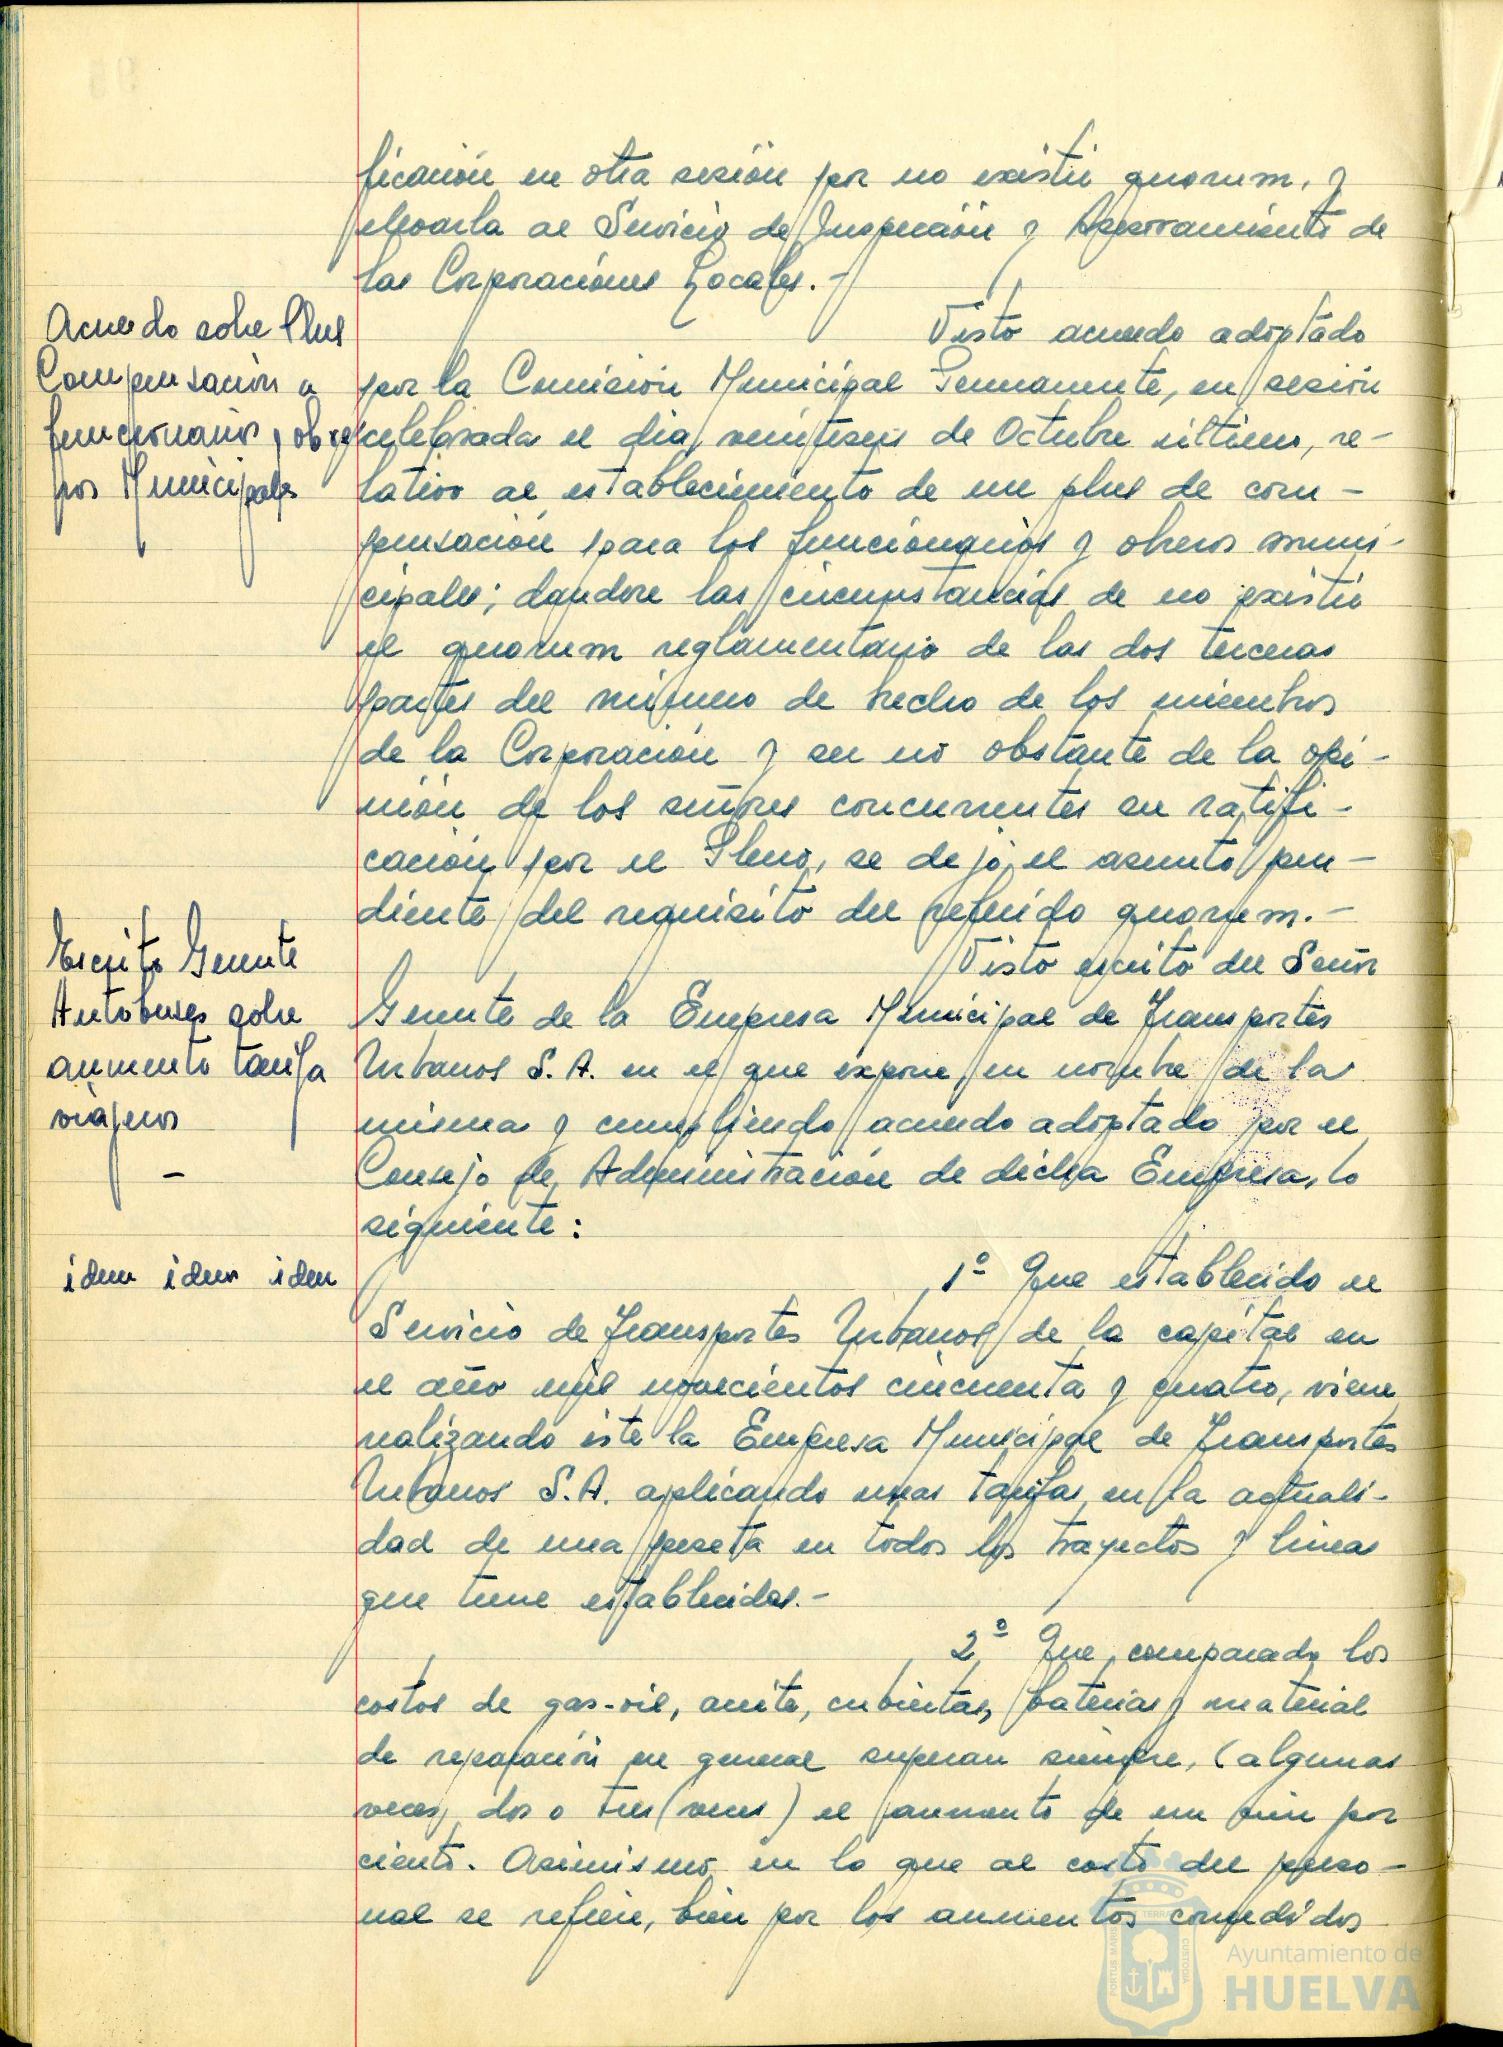 ficación en otra sesión por no existir quorum, y
elevarla al Servicio de Inspección y Asesoramiento de
las Corporaciones Locales.-
Acuerdo sobre Plus
Compensación a
funcionarios, obre
ros Municipales
Visto acuerdo adoptado
por la Comisión Municipal Permanente, en sesión
celebrada el dia veintiseis de Octubre último, re-
lativo al establecimiento de un plus de com-
pensación para los funcionarios y obreros muni-
cipales; dandose las circunstancias de no existir
el quorum reglamentario de las dos terceras
partes del número de hecho de los miembros
de la Corporación y en no obstante de la opi-
nión de los señores concurrentes su ratifi-
cación por el Pleno, se dejó el asunto pen-
diente del requisito del referido quorum.-
Escrito Gerente
Autobuses sobre
aumento tarifa
viajeros
-
Visto escrito del Señor
Gerente de la Empresa Municipal de Transportes
Urbanos S.A. en el que expone en nombre de la
misma y cumpliendo acuerdo adoptado por el
Consejo de Administración de dicha Empresa, lo
siguiente:
idem idem idem
1º Que establecido el
Servicio de Transportes Urbanos de la capital en
el año mil novecientos cincuenta y cuatro, viene
realizando éste la Empresa Municipal de Transportes
Urbanos S.A. aplicando unas tarifas en la actuali-
dad de una peseta en todos los trayectos y lineas
que tiene establecidas.-
2º Que comparado los
costos de gas-oil, aceite, cubiertas, baterias y material
de reparación en general superan siempre, (algunas
veces, dos o tres veces) el aumento de un cien por
ciento. Asimismo en lo que al costo del perso-
nal se refiere, bien por los aumentos concedidos
PORTUS MARIS ET TERRAE CUSTODIA
Ayuntamiento de
HUELVA